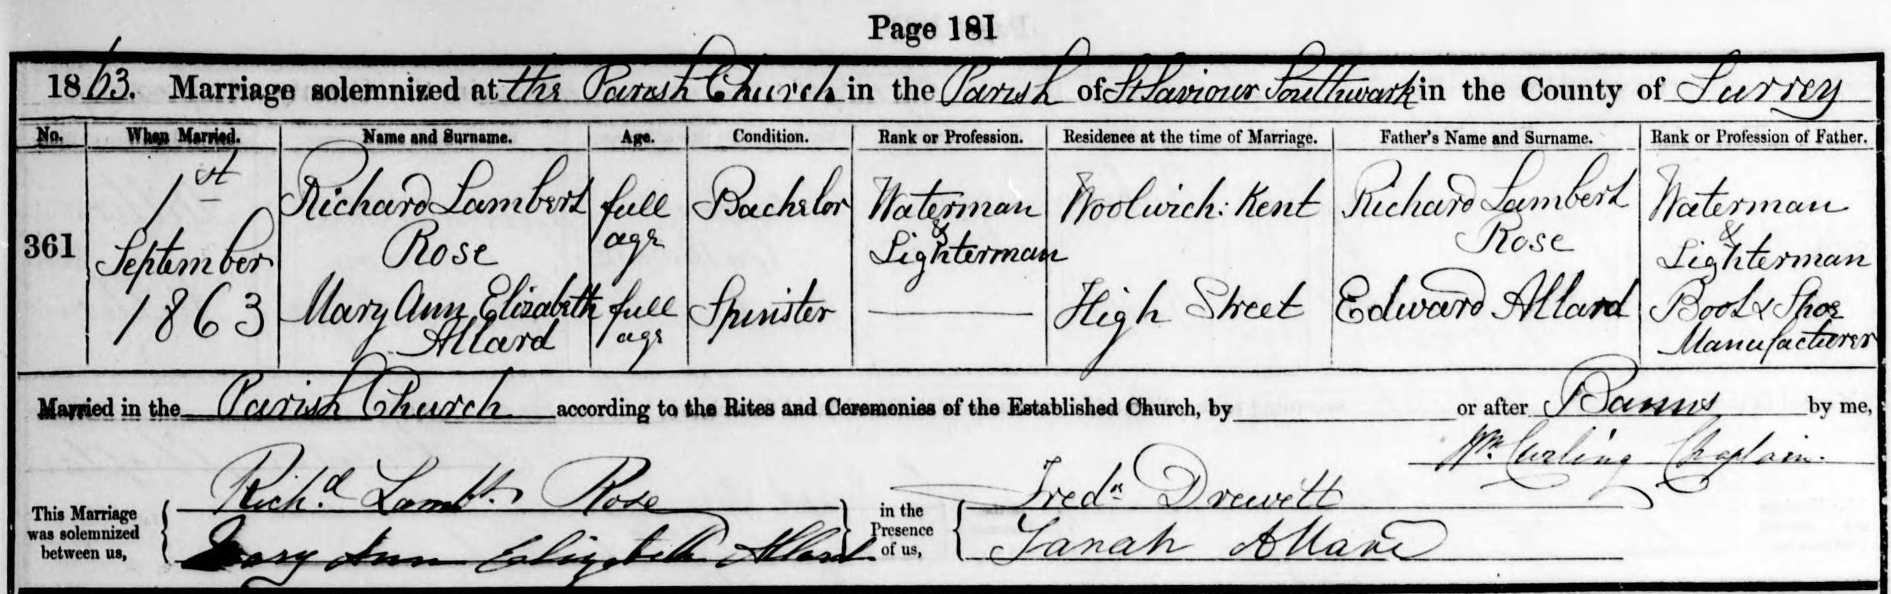 Page 181
1863. Marriage solemnized at the Parish Church in the Parish of St Saviour Southwark in the County of Surrey
No. When Married. Name and Surname. Age. Condition. Rank or Profession. Residence at the time of Marriage. Father's Name and Surname. Rank or Profession of Father.
361
1st
September
1863
Richard Lambert
Rose
full
age
Bachelor
Waterman
&
Lighterman
Woolwich: Kent
Richard Lambert
Rose
Waterman
&
Lighterman
Mary Ann Elizabeth
Allard
full
age
Spinster
High Street
Edward Allard
Boot & Shoe
Manufacturer
Married in the Parish Church according to the Rites and Ceremonies of the Established Church, by or after Banns by me,
Wm. Curling Chaplain.
This Marriage
was solemnized
between us,
Richd. Lambt. Rose
Mary Ann Elizabeth Allard
in the
Presence
of us,
Fredk Drewett
Sarah Allard